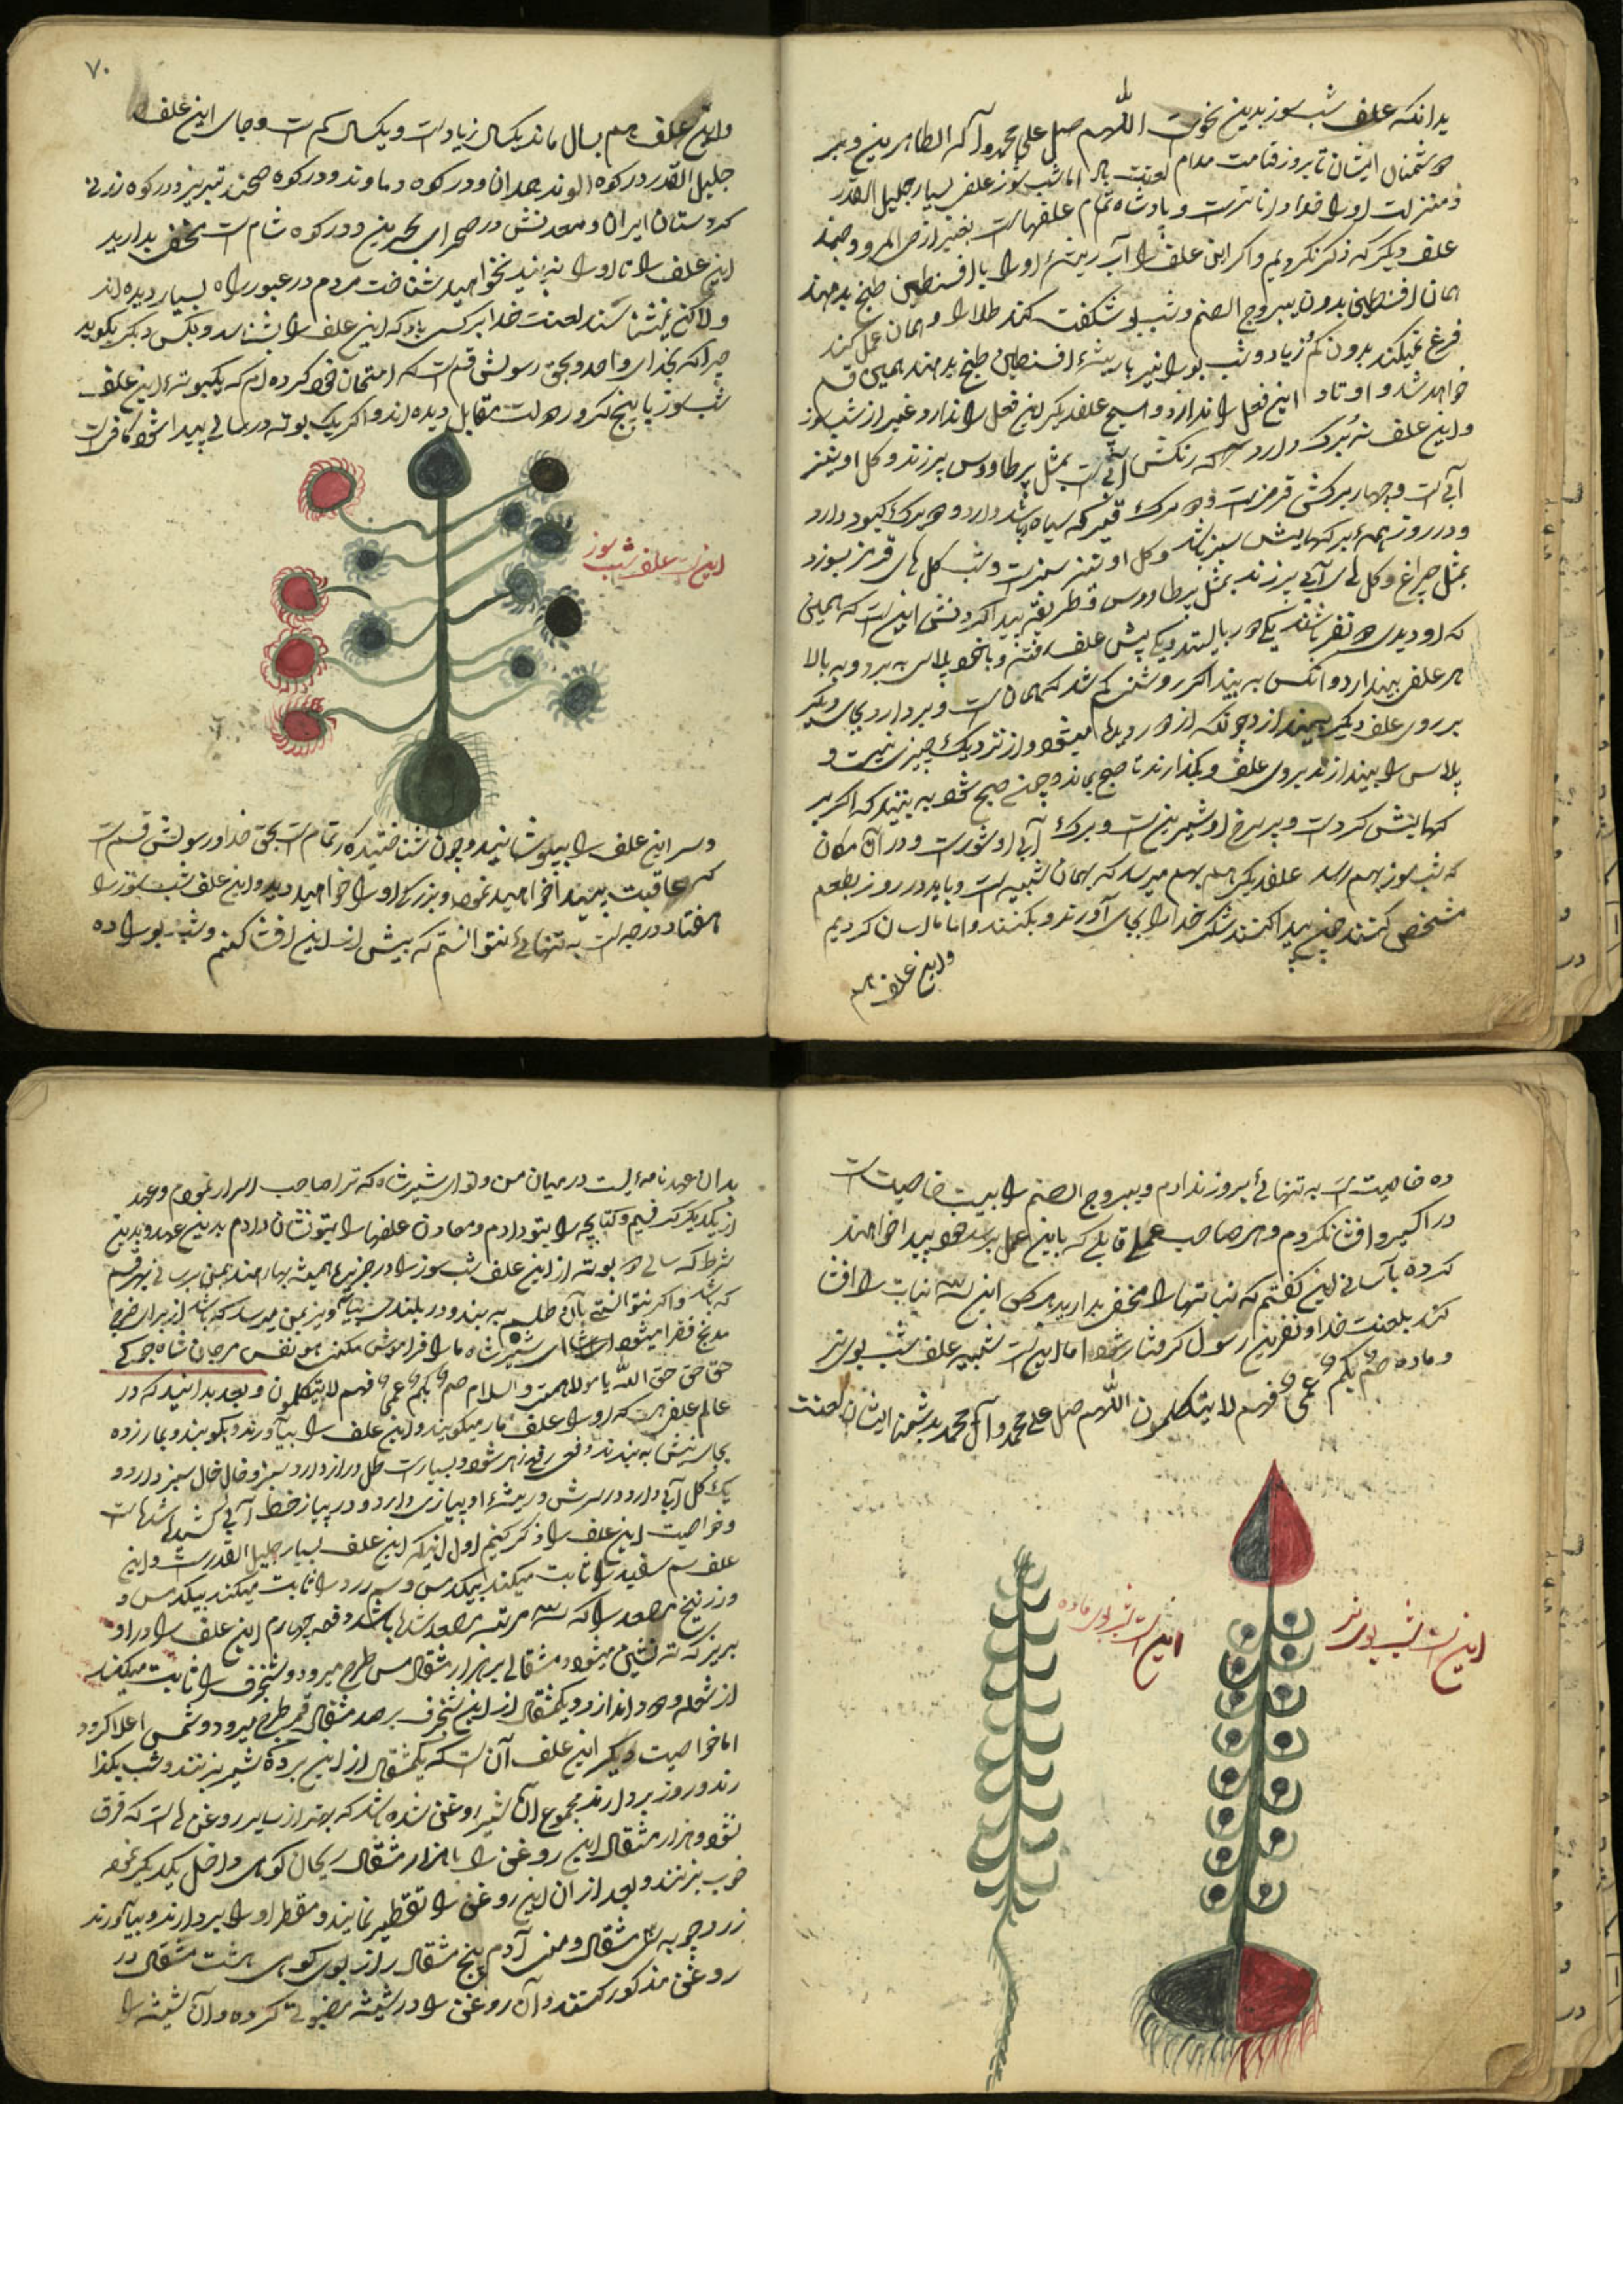 بدانکه علف شب سوز بدین نحوست اللهم صل علی محمد و آله الطاهرین و بر
دشمنان ایشان تا بروز قیامت مدام لعنت باد اما شب سوز علف بسیار جلیل القدر
و منزلت او را خدا داناتر است و پادشاه تمام علفهاست بغیر از
علف دیگر که ذکر نکردیم و اگر این علف را آب ریشهٔ او را با افسنطین طبخ بدهند
همان افسنطین بدون یبروج الصنم و شب بو شکفت کند طلا را و همان عمل کند
فرغ نمیکند بدون کم و زیاد و شب بو را نیز با ریشهٔ افسنطین طبخ بدهند همین قسم
خواهد شد و او تاد این فعل را ندارد و هیچ علف دیگر این فعل را ندارد غیر از شب سوز
و این علف نه برک دارد که رنکش آبیست بمثل پر طاووس میزند و کل او نیز
آبیست و چهار برکش قرمز است و دو برک قیر که سیاه باشد دارد و دو برک کبود دارد
و در روز همهٔ برکهایش سبز باشد و کل او نیز سبز است و شب کل های قرمز بسوزد
بمثل چراغ و کل های آبی میزند بمثل پر طاووس و طریقه پیدا کردنش این است که همین
که او دیدی دو نفر باشند یکی دور بایستد و یکی پیش علف رفته و با خود پلاس به برد و به بالا
هر علفی بیندازد و آنکس به بیند اکر روشنی کم شد که همان است و بردارد بجای دیکر
بر روی علف دیکر بیندازد چونکه از دور دیده میشود و از نزدیک چیزی نیست و
پلاس را بیندازند بروی علف و بگذارند تا صبح بماند و چون صبح شود به بینند که اکر بر
کهایش کرد است و پر برخ او شیرین است و برک آبی او شور است و در آن مکان
که شب سوز بهم رسد علف دیکر هم بهم میرسد که بهمان شبیه است و باید در روز بطعم
مشخص کنند چون پیدا کنند شکر خدا را بجای آورند و بکنند و اما ما آسان کردیم
و این علف هم
۷۰
و این علف هم بسال ماند یکسال زیاد است و یکسال کم است و جای این علف
جلیل القدر در کوه الوند همدان و در کوه دماوند و در کوه سهند تبریز و در کوه
کردستان ایران و معدنش در صحرای بحرین و در کوه شام است مخفی بدارید
این علف را تا او را نه بینید نخواهید شناخت مردم در عبور راه بسیار دیده اند
ولاکن نمیشناسند لعنت خدا بر کسی باد که این علف را بشناسد و بکس دیکر بکوید
چرا که بخدای واحد و بحق رسولش قسم است که امتحان خود کرده ام که یکبوتهٔ این علف
شب سوز با پنج کرور دولت مقابل دیده اند و اکر یک بوته در سالی پیدا شود کافیست
این است علف شب سوز
و سر این علف را بپوشانید و چون شناختید کار تمام است بحق خدا و رسولش قسم است
که عاقبت بینید خواهید نمود و بزرکی او را خواهید دید و این علف شب سوز را
هفتاد درجه است به تنهائی نتوانستم که بیش از این افشا کنم و شب بو را ده
ده خاصیت است به تنهائی بروز ندادم و یبروج الصنم را بیست خاصیت است
در اکسیر و افشا نکردم و هر صاحب عملی قابلی که باین عمل برسد خود پیدا خواهند
کرده بآسانی این کفتم که نباتها را مخفی بدارید هر کس این سه نبات را افشا
کند بلعنت خدا و نفرین رسول کرفتار شود اما اینست شبیه علف شب بوی نر
و ماده صم بکم عمی فهم لا یتکلمون اللهم صل علی محمد و آل محمد بدشمنان ایشان لعنت
این است شب بوی نر
این است شب بوی ماده
بدان عهدنامه ایست در میان من و تو ای شیر شاه که ترا صاحب اسرار نمودم و عهد
از یکدیگر کرفتیم و کتابچه را بتو دادم و معادن علفها را بتو نشان دادم بدین عهد و بدین
شرط که سالی دو بوته از این علف شب سوز را در جزیرهٔ همیشه بهار هند بمن برسانی بهر قسم
که باشد و اکر نتوانستی با آبی طلب به بند و در بلندی بیا و نیز بمن میرسد که باشد از برای خرج
مدبخ فقرا میشود ای شیر شاه ما را فراموش مکنی هو نفس مرجان شاه جوکی
حق حق حق الله یا مولا همت والسلام صم بکم عمی فهم لا یتکلمون و بعد بدانید که در
عالم علفی هست که او را علف مار میکویند و این علف را بیاورند و بکوبند و بمار زده
بجای نیش به بندند دفع زهر شود و بسیار است طل دراز دارد سبز و خال خال سبز دارد و
یک کل آبی دارد در سرش و ریشهٔ او پیازی دارد و در پیاز خط آبی کشیده شده است
و خواصیت این علف را ذکر کنیم اول اینکه این علف بسیار جلیل القدر است و این
علف سم سفید را ثابت میکند بیکدس و سم زرد را ثابت میکند بیکدس و
و زرنیخ مصعد را که سه مرتبه مصعد شده باشد دفعه چهارم این علف را در او
بریز که ته نشین میشود و مثقالی بر هزار مثقال مس طرح میرود و شنجرف را ثابت میکند
از شعله و دود اندازد و یکمثقال از این شنجرف بر صد مثقال قمر طرح میرود و شمس اعلا کرد
اما خواصیت دیگر این علف آن است که یکمثقال از این بر ده شیر بزنند و شب بکذا
رند و روز بردارند مجموع آن شیر روغن شده باشد که بهتر از سایر روغن ها است که فرق
نشود و هزار مثقال این روغن را با هزار مثقال ریحان کوهی داخل یکدیگر نموده
خوب بزنند و بعد از آن این روغن را تقطیر نمایند و مقطر او را بردارند و بیاورند
زردچوبه سی مثقال و منی آدم پنج مثقال رازبوی کوهی هشت مثقال در
روغن مذکور کنند و آن روغن را در شیشه مضبوطی کرده و آن شیشه را